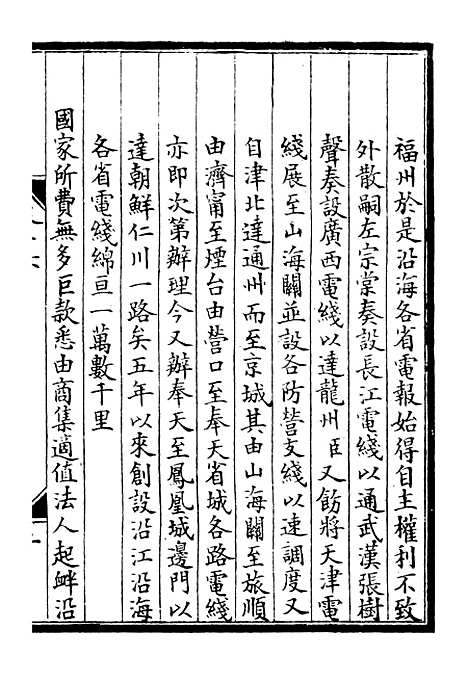 福州於是沿海各省電報始得自主權利不致
外散嗣左宗棠奏設長江電綫以通武漢張樹
聲奏設廣西電綫以達龍州臣又飭將天津電
綫展至山海關並設各防營支綫以速調度又
自津北達通州而至京城其由山海關至旅順
由濟甯至煙台由營口至奉天省城各路電綫
亦即次第辦理今又辦奉天至鳳凰城邊門以
達朝鮮仁川一路矣五年以來創設沿江沿海
各省電綫綿亘一萬數千里
國家所費無多巨款悉由商集適值法人起衅沿